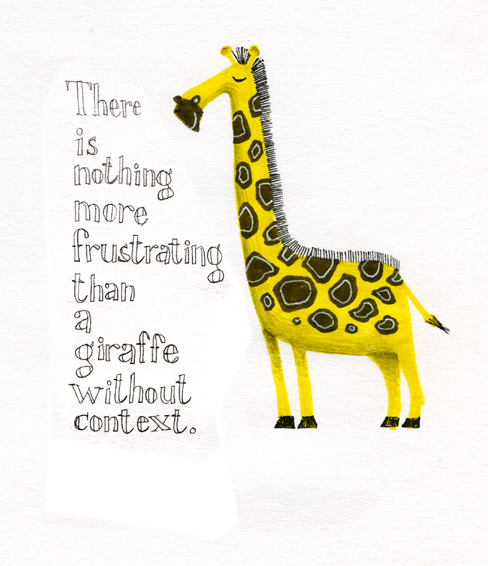 There
is
nothing
more
frustrating
than
a
giraffe
without
context.